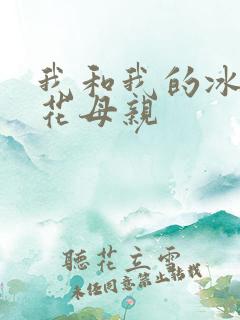 我和我的冰
花母親
聽花立雪
未经同意禁止转载